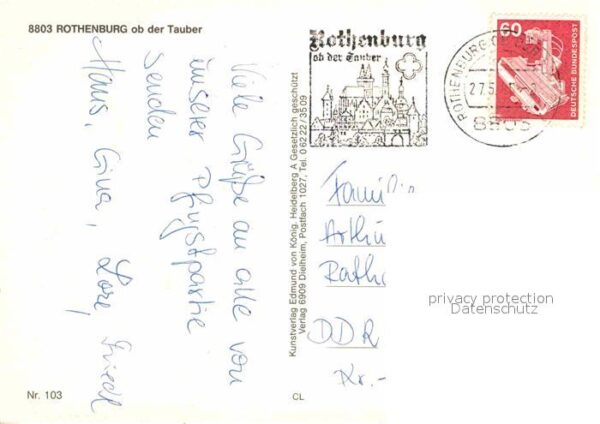 8803 ROTHENBURG ob der Tauber
Viele Grüße an alle von
unserer Pfingstpartie
senden
Hans, Gina, Lore, Friedl
Nr. 103
Kunstverlag Edmund von König, Heidelberg A Gesetzlich geschützt
Verlag 6909 Dielheim, Postfach 1027, Tel. 0 62 22 / 35 09
CL
Rothenburg
ob der Tauber
ROTHENBURG
27.5
8803
60
DEUTSCHE BUNDESPOST
Famili
Arthu
Rath
DDR
Kr.-
privacy protection
Datenschutz